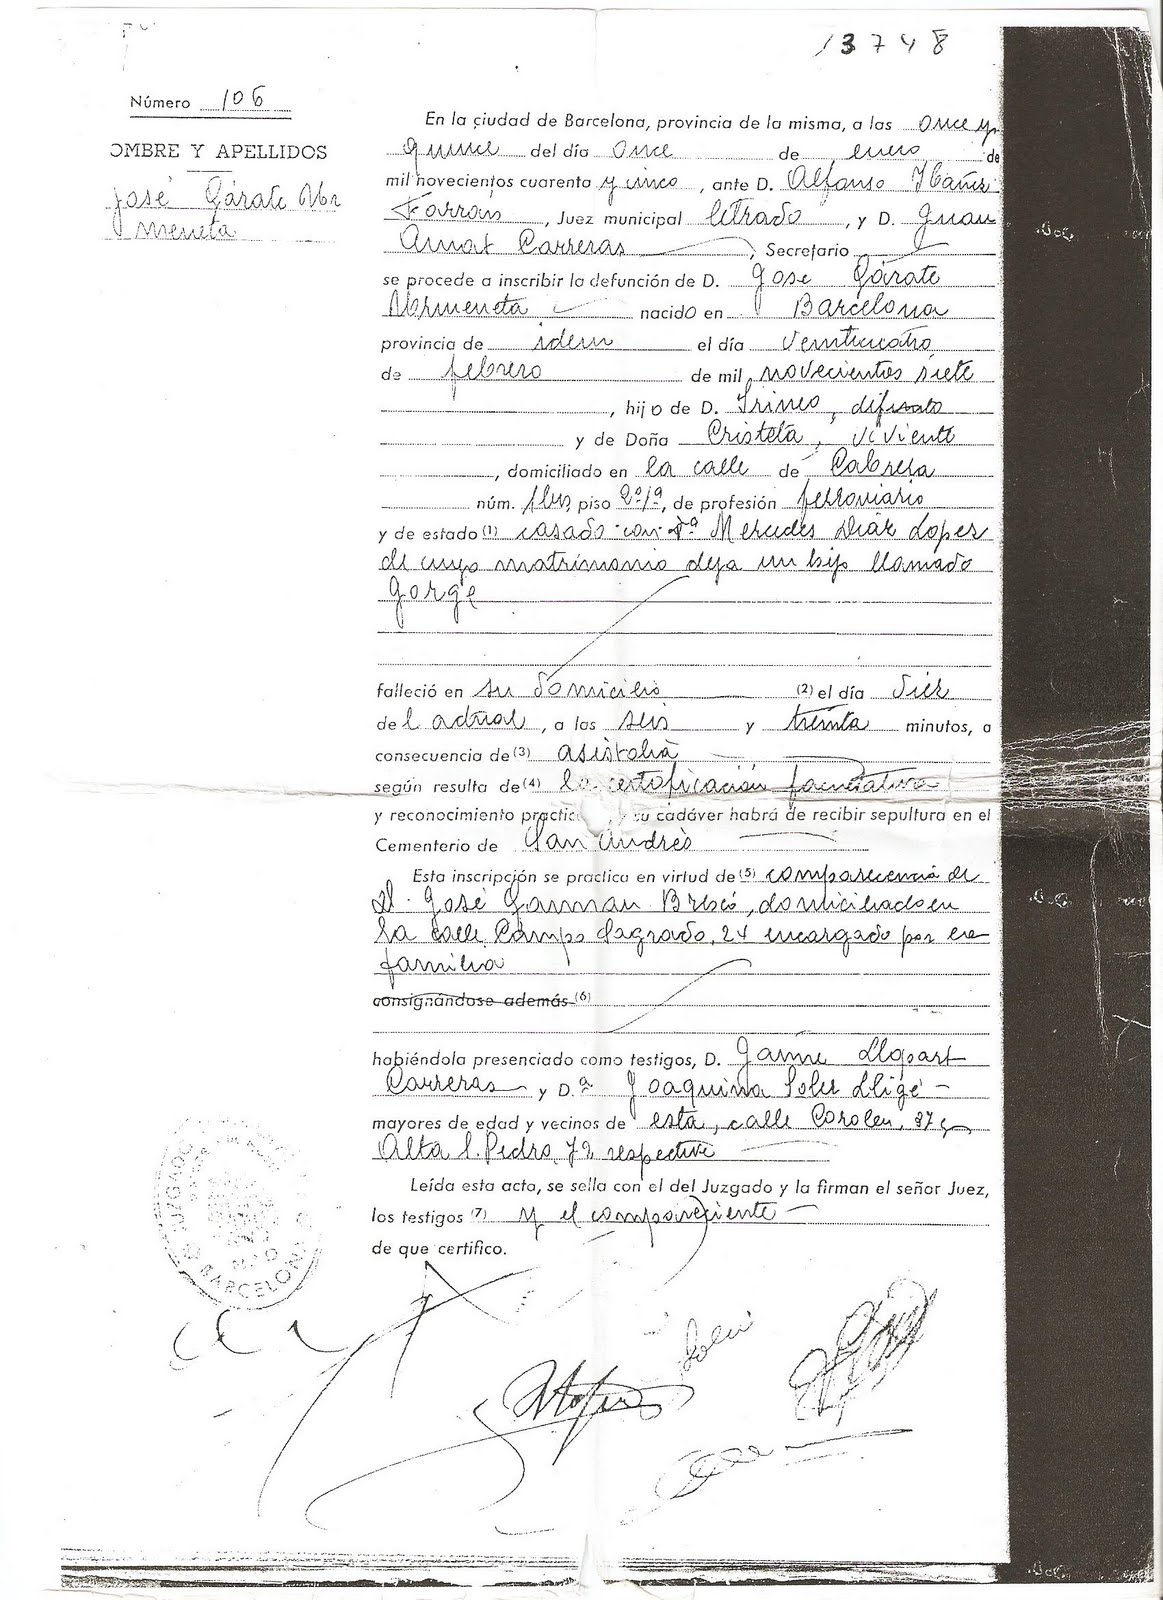 13748
Número 106
OMBRE Y APELLIDOS
José Gárate Vor
meneta
En la ciudad de Barcelona, provincia de la misma, a las once y
quince del día once de enero de
mil novecientos cuarenta y cinco, ante D. Alfonso Ybáñez
Farrás, Juez municipal letrado, y D. Juan
Amat Carreras, Secretario
se procede a inscribir la defunción de D. José Gárate
Vormeneta nacido en Barcelona
provincia de idem el día veinticuatro
de febrero de mil novecientos siete
, hijo de D. Irineo, difunto
y de Doña Cristeta, viviente
, domiciliado en la calle de Cabrera
núm. piso 2º 1ª, de profesión ferroviario
y de estado (1) casado con Dª Mercedes Díaz Lopez
de cuyo matrimonio deja un hijo llamado
Jorge
falleció en su domicilio (2) el día diez
del actual, a las seis y treinta minutos, a
consecuencia de (3) asistolia
según resulta de (4) la certificación facultativa
y reconocimiento practic , y su cadáver habrá de recibir sepultura en el
Cementerio de San Andrés
Esta inscripción se practica en virtud de (5) comparecencia de
D. José Gasman Brescó, domiciliado en
la calle Campo Sagrado, 24 encargado por la
familia
consignándose además (6)
habiéndola presenciado como testigos, D. Jaime Llopart
Carreras y D.ª Joaquina Soler Lligé
mayores de edad y vecinos de esta, calle Coroleu, 87 y
Alta S. Pedro, 72 respective
Leída esta acta, se sella con el del Juzgado y la firman el señor Juez,
los testigos (7) y el compareciente
de que certifico.
JUZGADO
BARCELONA
Soler